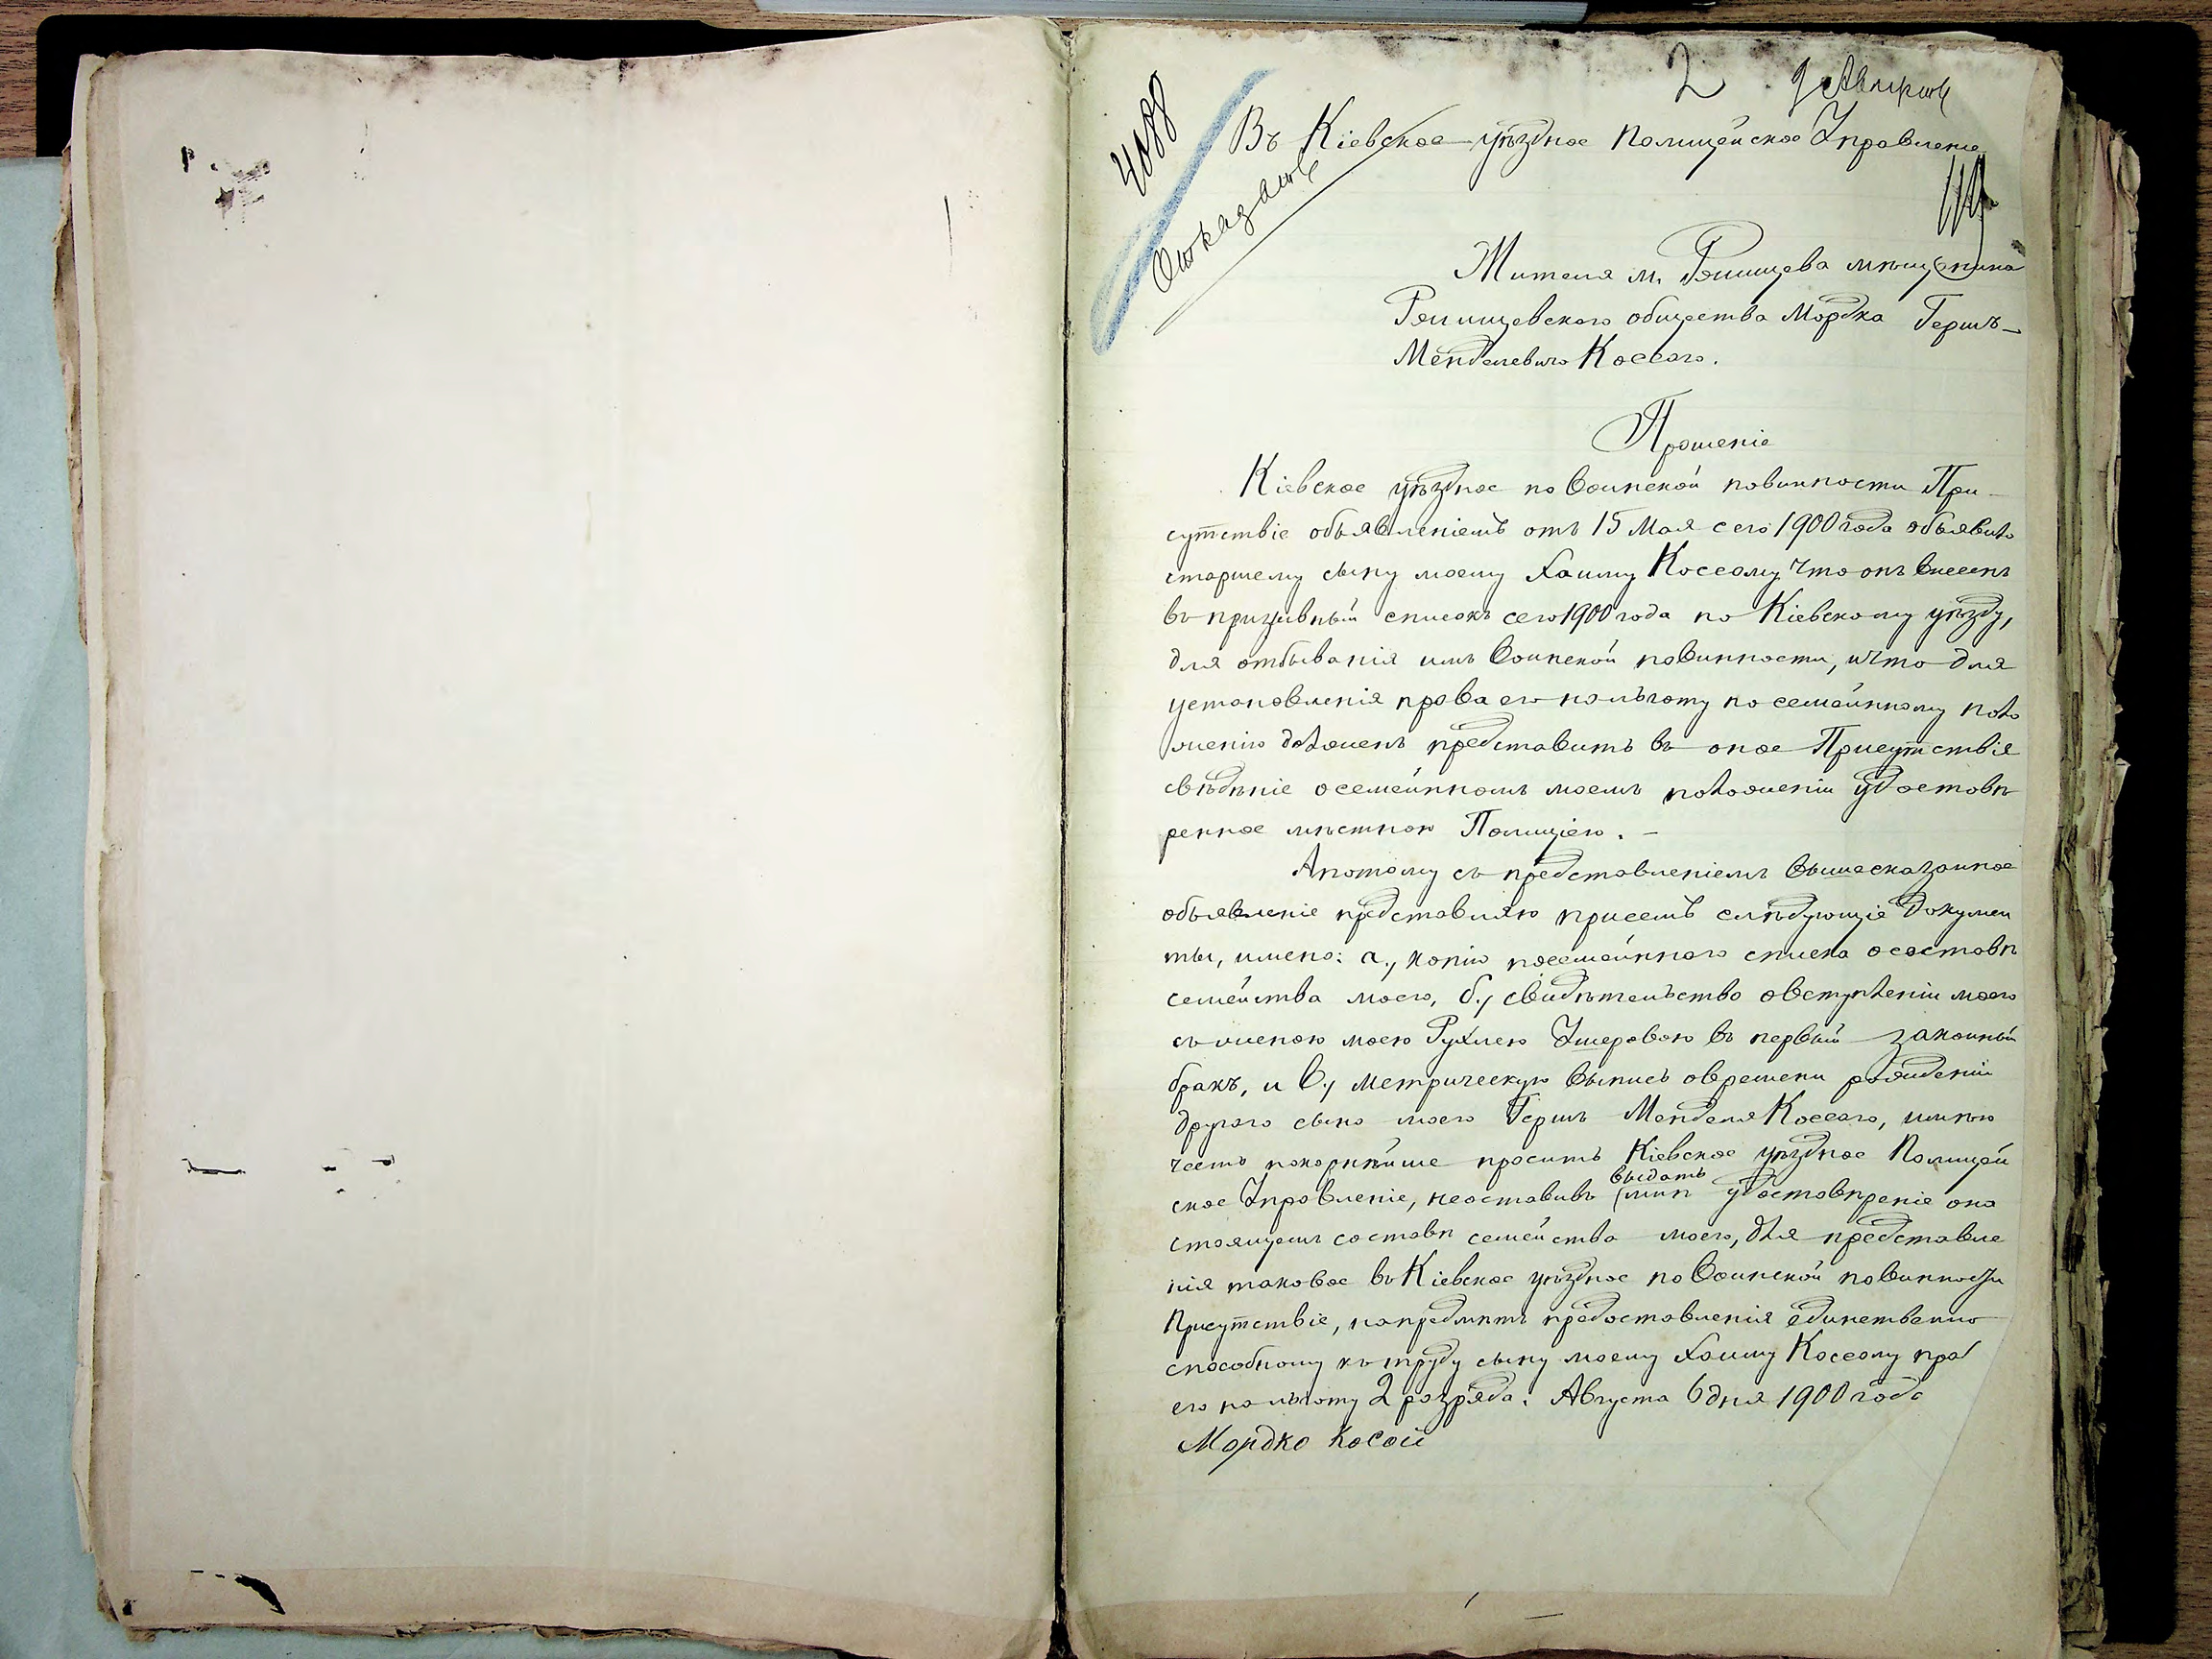 2
4088
Отказать
Въ Кіевское уѣздное Полицейское Управленіе
Жителя м. Ржищева мѣщанина
Ржищевскаго общества Мордка Гершъ-
Менделевича Коссаго.
Прошеніе
Кіевское уѣздное по Воинской повинности При-
сутствіе объявленіемъ отъ 15 Мая сего 1900 года объявило
старшему сыну моему Хаиму Коссому что онъ внесенъ
въ призывный списокъ сего 1900 года по Кіевскому уѣзду,
для отбыванія имъ Воинской повинности, и что для
установленія права его на льготу по семейному поло
женію долженъ представить въ оное Присутствія
свѣдѣніе о семейномъ моемъ положеніи удостовѣ
ренное мѣстною Полиціею. -
А потому съ представленіемъ вышесказанное
объявленіе представляю присемъ слѣдующіе докумен
ты, имено: а., копію посемейнаго списка о составѣ
семейства моего, б., свидѣтельство о вступленіи моего
съ женою моею Рухлею Умеровою въ первый законный
бракъ, и в., метрическую выпись о времени рожденіи
другого сына моего Гершъ Менделя Коссаго, имѣю
честь покорнѣйше просить Кіевское уѣздное Полицей
выдать
ское Управленіе, неоставивъ мнѣ удостовѣреніе о на
стоящемъ составѣ семейства моего, для представле
нія таковое въ Кіевское уѣздное по Воинской повинности
Присутствіе, на предмѣтъ предоставленія единственно
способному къ труду сыну моему Хаиму Коссому прав
его на льготу 2 розряда. Августа 6 дня 1900 года
Мордко Косой